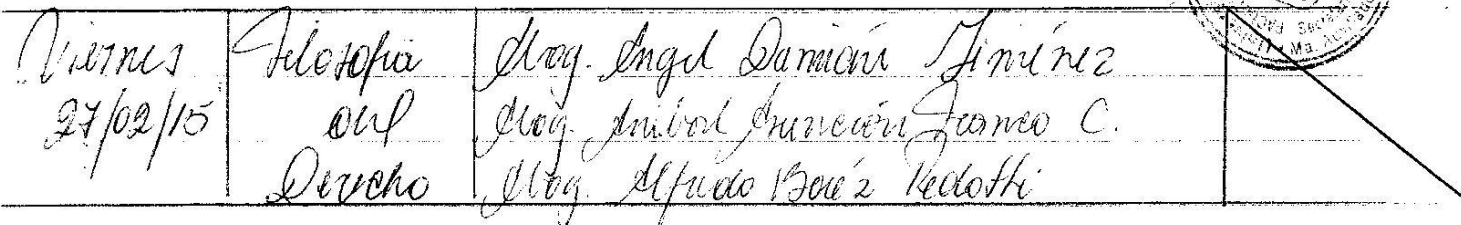 Viernes
27/02/15
Filosofía
del
Derecho
Abog. Angel Damián Jiménez
Abog. Anibal Asunción Franco C.
Abog. Alfredo Báez Pedotti